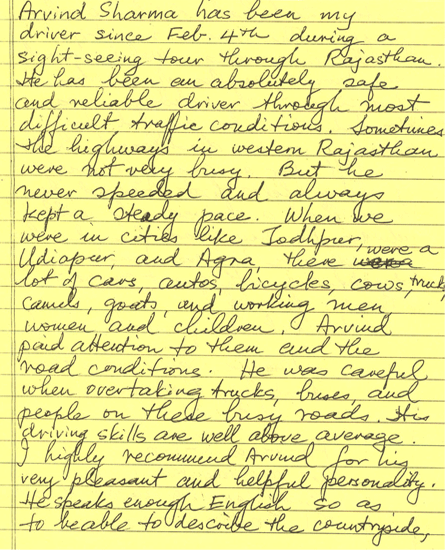 Arvind Sharma has been my
driver since Feb. 4th during a
sight-seeing tour through Rajasthan.
He has been an absolutely safe
and reliable driver through most
difficult traffic conditions. Sometimes
the highways in western Rajasthan
were not very busy. But he
never speeded and always
kept a steady pace. When we
were in cities like Jodhpur,
Udiapur, and Agra, there were a
lot of cars, autos, bicycles, cows, trucks
camels, goats, and working men,
women and children. Arvind
paid attention to them and the
road conditions. He was careful
when overtaking trucks, buses, and
people on these busy roads. His
driving skills are well above average.
I highly recommend Arvind for his
very pleasant and helpful personality.
He speaks enough English so as
to be able to describe the countryside,